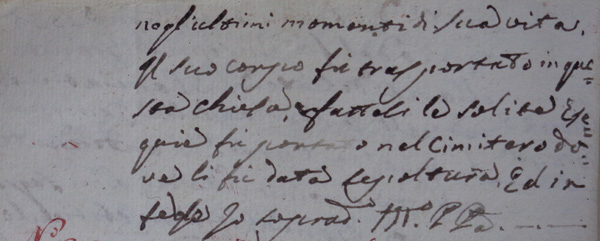 negl'ultimi momenti di sua vita.
Il suo corpo fù trasportato in que=
sta chiesa, e fatteli le solite Ese=
quie fù portato nel Cimitero do=
ve li fù data sepoltura. Ed in
fede Io soprad.º
Nº